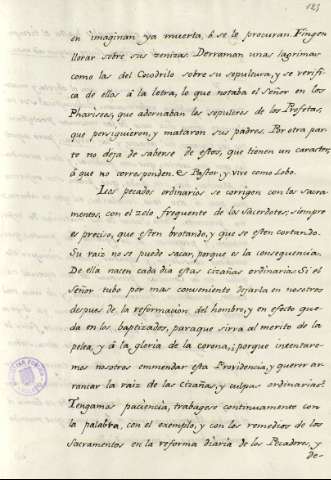 123
en imaginan ya muerta, ô se lo procuran. Fingen
llorar sobre sus zenizas. Derraman unas lagrimas
como las del Cocodrilo sobre su sepultura, y se verifi
ca de ellos â la letra, lo que notaba el Señor en los
Phariseos, que adornaban los sepulcros de los Profetas,
que persiguieron, y mataron sus padres. Por otra par
te no deja de saberse de estos, que tienen un caracter,
ô que no corresponden. Es Pastor, y vive como Lobo.
Los pecados ordinarios se corrigen con los Sacra
mentos, con el zelo frequente de los Sacerdotes; siempre
es preciso, que esten brotando, y que se esten cortando.
Su raiz no se puede sacar, porque es la consequencia.
De ella nacen cada dia estas cizañas ordinarias. Si el
Señor tubo por mas conveniente dejarla en nosotros
despues de la reformacion del hombre, y en efecto que
da en los baptizados, paraque sirva al merito de la
pelea, y â la gloria de la corona, ¿porque intentare
mos nosotros enmendar esta Providencia, y querer ar
rancar la raiz de las cizañas, y culpas ordinarias?
Tengamos paciencia, trabagese continuamente con
la palabra, con el exemplo, y con los remedios de los
Sacramentos en la reforma diaria de los Pecadores, y
de-